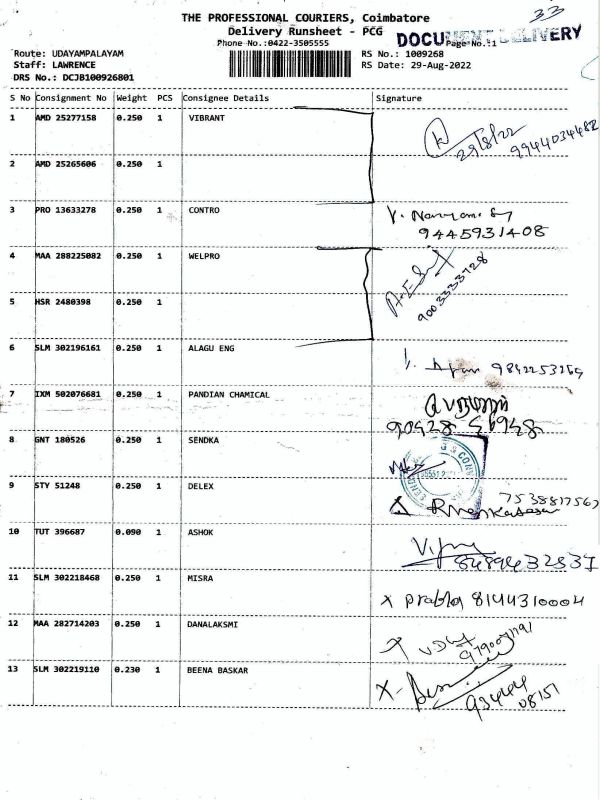 33
THE PROFESSIONAL COURIERS, Coimbatore
Delivery Runsheet - PCG
DOCUMENT DELIVERY
Phone No.:0422-3505555
Page No.:1
Route: UDAYAMPALAYAM
RS No.: 1009268
Staff: LAWRENCE
RS Date: 29-Aug-2022
DRS No.: DCJB100926801
S No Consignment No Weight PCS Consignee Details Signature
1 AMD 25277158 0.250 1 VIBRANT
29/8/22
9944034482
2 AMD 25265606 0.250 1
3 PRO 13633278 0.250 1 CONTRO
9445931408
4 MAA 288225082 0.250 1 WELPRO
9003333728
5 HSR 2480398 0.250 1
6 SLM 302196161 0.250 1 ALAGU ENG
9842253269
7 IXM 502076681 0.250 1 PANDIAN CHAMICAL
8 GNT 180526 0.250 1 SENDKA
9 STY 51248 0.250 1 DELEX
7538817567
10 TUT 396687 0.090 1 ASHOK
8489432837
11 SLM 302218468 0.250 1 MISRA
x prabha 8144310004
12 MAA 282714203 0.250 1 DANALAKSMI
13 SLM 302219110 0.230 1 BEENA BASKAR
93444
08151